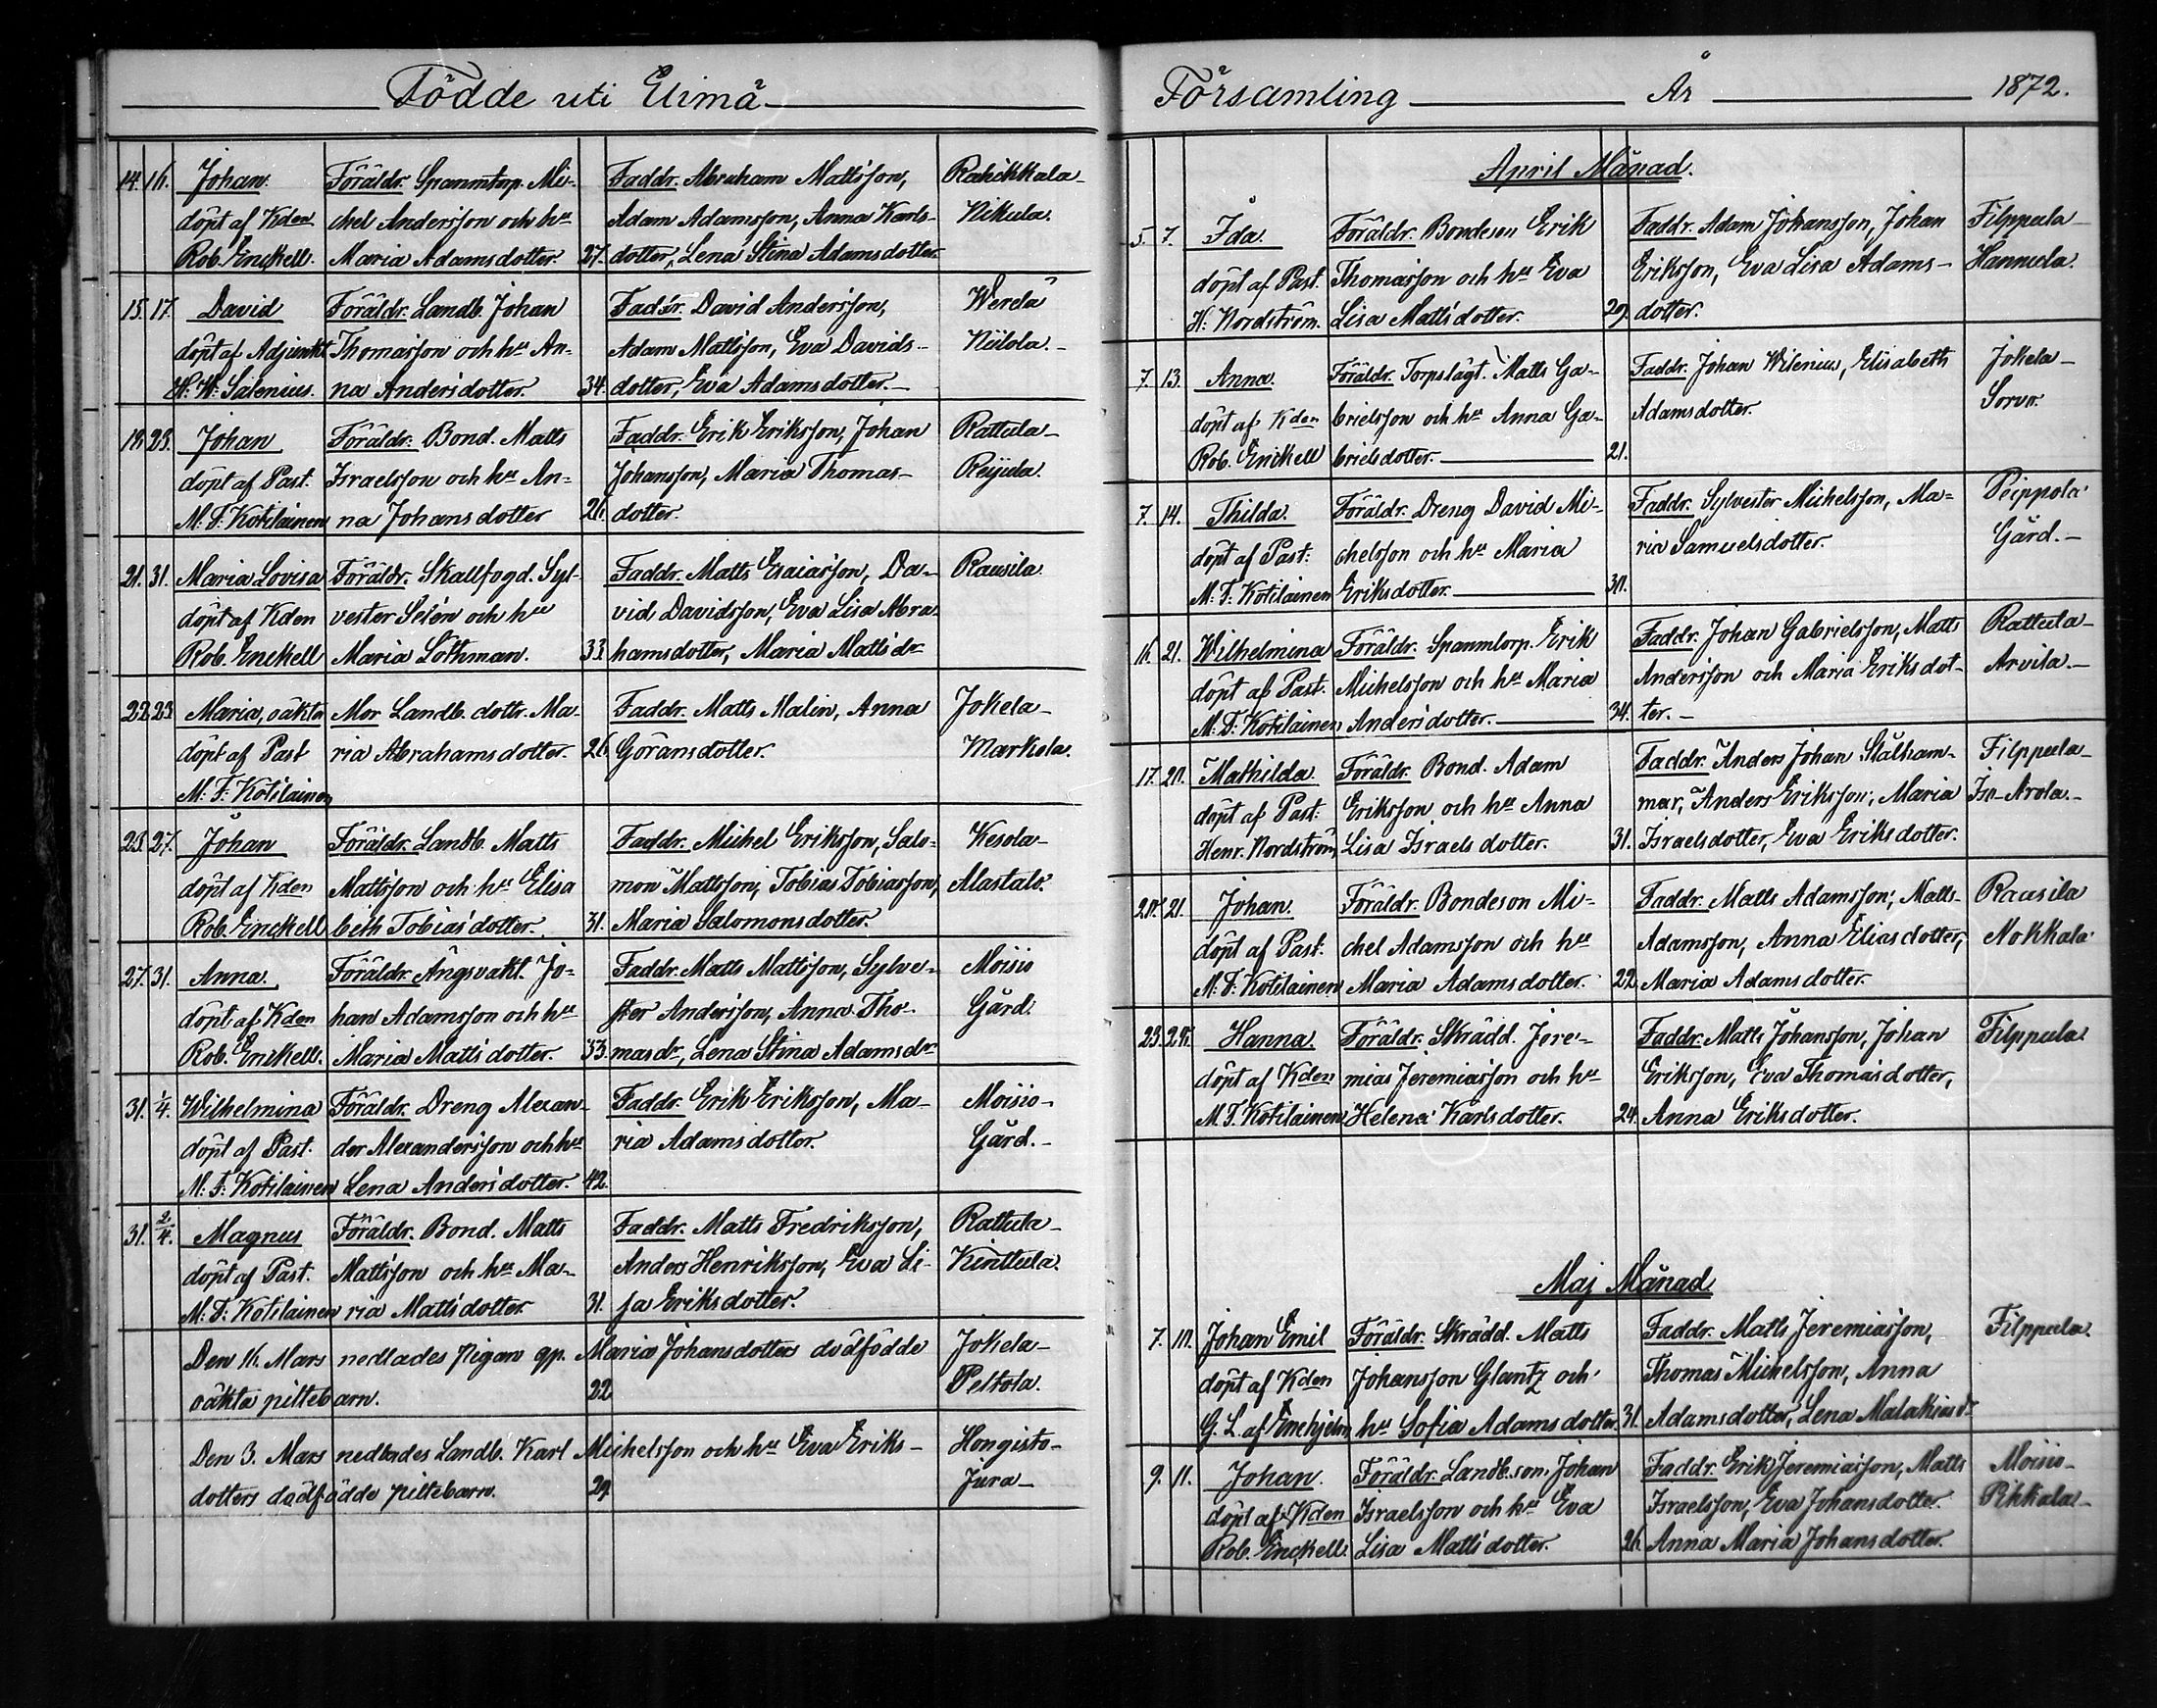 Födde uti Elimä
14. 16. Johan. Föräldr. Spanmtorp. Mi- Faddr. Abraham Mattsson, Raikkala-
döpt af Kden chel Andersson och hu Adam Adamsson, Anna Karls- Nikula.
Rob. Enckell. Maria Adamsdotter. 27. dotter, Lena Stina Adamsdotter.
15. 17. David Föräldr. Landb. Johan Faddr. David Andersson, Werelä
döpt af Adjunkt Thomasson och hu An- Adam Mattsson, Eva Davids- Niilola.-
H: W: Salenius. na Andersdotter. 34. dotter, Eva Adamsdotter.-
19. 23. Johan Föräldr. Bond. Matts Faddr. Erik Eriksson, Johan Rattula-
döpt af Past. Israelsson och hu An- Johansson, Maria Thomas- Reijula.
M: F: Kotilainen na Johansdotter 26. dotter.
21. 31. Maria Lovisa Föräldr. Skallfogd. Syl- Faddr. Matts Esaiasson, Da- Rausila.
döpt af Kden vester Selén och hu vid Davidsson, Eva Lisa Abra-
Rob. Enckell Maria Löthman. 33. hamsdotter, Maria Mattsdr
22. 23. Maria, oäkta Mor Landb. dottr. Ma- Faddr. Matts Malin, Anna Jokela-
döpt af Past ria Abrahamsdotter. 26. Göransdotter. Markola.
M: F: Kotilainen
23. 27. Johan Föräldr. Landb. Matts Faddr. Michel Eriksson, Salo- Kesola-
döpt af Kden Mattsson och hu Elisa mon Mattsson, Tobias Tobiasson, Alastalo.
Rob. Enckell beth Tobiasdotter. 31. Maria Salomonsdotter.
27. 31. Anna. Föräldr. Ängsvakt. Jo- Faddr. Matts Mattsson, Sylve- Moisio
döpt af Kden han Adamsson och hu ster Andersson, Anna Tho- Gård.
Rob. Enckell. Maria Mattsdotter. 33. masdr, Lena Stina Adamsdr
31. 1/4. Wilhelmina Föräldr. Dreng Alexan- Faddr. Erik Eriksson, Ma- Moisio-
döpt af Past. der Alexandersson och hu ria Adamsdotter. Gård.-
M: F: Kotilainen Lena Andersdotter. 42.
31. 2/4. Magnus Föräldr. Bond. Matts Faddr. Matts Fredriksson, Rattula-
döpt af Past. Mattsson och hu Ma- Anders Henriksson, Eva Li- Kinttula.
M: F: Kotilainen ria Mattsdotter 31. sa Eriksdotter.
Den 16. Mars nedlades pigan gp. Maria Johansdotters dödfödde Jokela-
oäkta piltebarn. 22 Peltola.
Den 3. Mars nedlades Landb. Karl Michelsson och hu Eva Eriks- Hongisto-
dotters dödfödde piltebarn. 29. Jura-
Församling År 1872.
April Månad.
5. 7. Ida. Föräldr. Bondeson Erik Faddr. Adam Johansson, Johan Filppula-
döpt af Past. Thomasson och hu Eva Eriksson, Eva Lisa Adams- Hannula.
H: Nordström. Lisa Mattsdotter. 29. dotter.
7. 13. Anna. Föräldr. Torpslägt. Matts Ga- Faddr. Johan Wilenius, Elisabeth Jokela-
döpt af Kden brielsson och hu Anna Ga- Adamsdotter. Sorvo.
Rob. Enckell brielsdotter. 21.
7. 14. Thilda. Föräldr. Dreng David Mi- Faddr. Sylvester Michelsson, Ma- Peippola
döpt af Past: chelsson och hu Maria ria Samuelsdotter. Gård.-
M: F: Kotilainen Eriksdotter. 30.
16. 21. Wilhelmina Föräldr. Spanmtorp. Erik Faddr. Johan Gabrielsson, Matts Rattula-
döpt af Past. Michelsson och hu Maria Andersson och Maria Eriksdot- Arvila.-
M: F: Kotilainen Andersdotter. 34. ter.-
17. 20. Mathilda. Föräldr. Bond. Adam Faddr. Anders Johan Stålham- Filppula-
döpt af Past: Eriksson och hu Anna mar, Anders Eriksson, Maria Iso-Arola.-
Henr. Nordström Lisa Israelsdotter. 31. Israelsdotter, Eva Eriksdotter.
20. 21. Johan. Föräldr. Bondeson Mi- Faddr. Matts Adamsson, Matts Rausila
döpt af Past: chel Adamsson och hu Adamsson, Anna Eliasdotter, Nokkala
M: F: Kotilainen Maria Adamsdotter. 22. Maria Adamsdotter.
23. 28. Hanna. Föräldr. Skrädd. Jere- Faddr. Matts Johansson, Johan Filppula
döpt af Kden mias Jeremiasson och hu Eriksson, Eva Thomasdotter,
M. F. Kotilainen Helena Karlsdotter. 24. Anna Eriksdotter.
Maj Månad
7. 10. Johan Emil Föräldr. Skrädd. Matts Faddr. Matts Jeremiasson, Filppula.
döpt af Kden Johansson Glantz och Thomas Michelsson, Anna
G. L. af Enehjelm hu Sofia Adamsdotter. 31. Adamsdotter, Lena Malakiasdr
9. 11. Johan. Föräldr. Landb.son. Johan Faddr. Erik Jeremiasson, Matts Moisio-
döpt af Kden Israelsson och hu Eva Israelsson, Eva Johansdotter Pikkala-
Rob. Enckell. Lisa Mattsdotter. 26. Anna Maria Johansdotter.